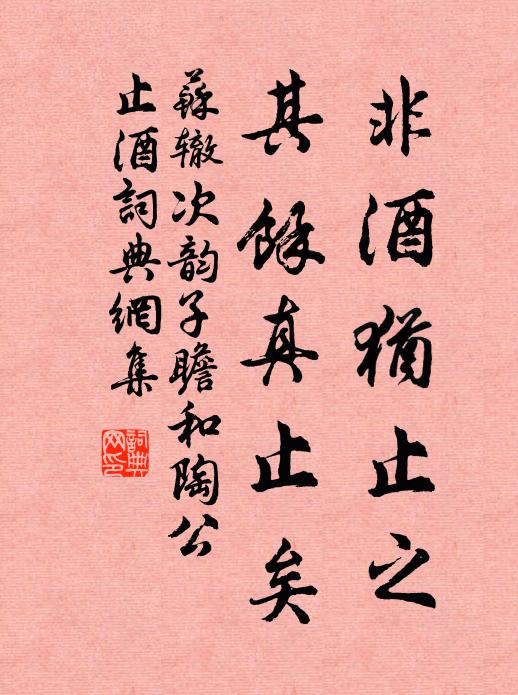 非酒猶止之
其餘真止矣
蘇辙次韵子瞻和陶公
止酒詞典網集
詞典
网印